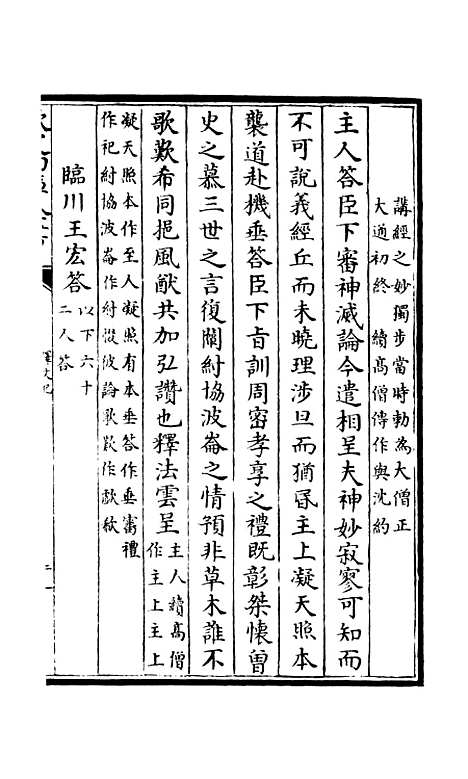 講經之妙獨步當時勅為大僧正
大通初終　續高僧傳作與沈約
主人答臣下審神滅論今遣相呈夫神妙寂寥可知而
不可說義經丘而未曉理涉旦而猶昏主上凝天照本
襲道赴機垂答臣下旨訓周密孝享之禮既彰桀懷曾
史之慕三世之言復闡紂協波崙之情預非草木誰不
歌歎希同挹風猷共加弘讚也釋法雲呈
主人續高僧
作主上主上
凝天照本作至人凝照有本垂答作垂審禮
作祀紂協波崙作紂懷波論歌歎作歔欷
臨川王宏答
以下六十
二人答
釋文紀